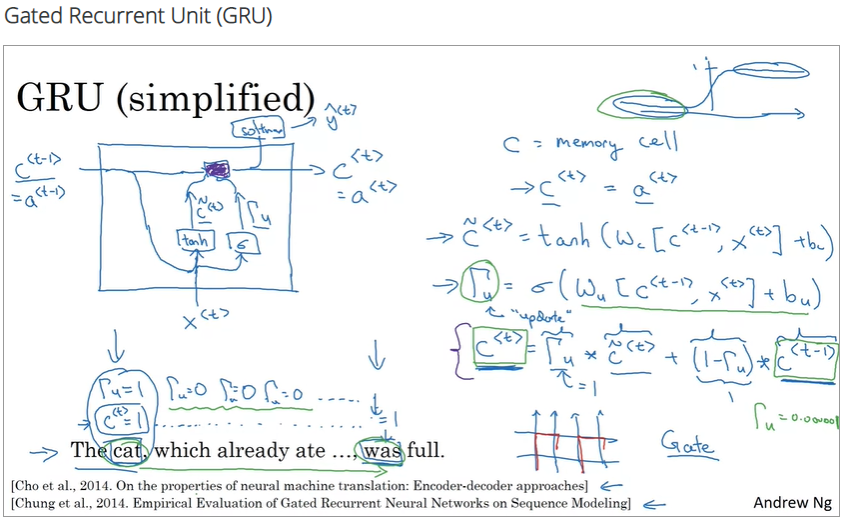 Gated Recurrent Unit (GRU)
GRU (simplified)
softmax → ŷ<t>
c<t-1>
= a<t-1>
c<t>
= a<t>
c̃<t>
Γu
tanh
σ
x<t>
C = memory cell
→ c<t> = a<t>
→ c̃<t> = tanh(Wc[c<t-1>, x<t>] + bc)
→ Γu = σ(Wu[c<t-1>, x<t>] + bu)
"update"
c<t> = Γu * c̃<t> + (1-Γu) * c<t-1>
= 1
1
Γu = 0.000001
Gate
Γu=1 Γu=0 Γu=0 Γu=0 .....
c<t>=1 ........... =1
→ The cat, which already ate ..., was full.
[Cho et al., 2014. On the properties of neural machine translation: Encoder-decoder approaches] ←
[Chung et al., 2014. Empirical Evaluation of Gated Recurrent Neural Networks on Sequence Modeling] ←
Andrew Ng